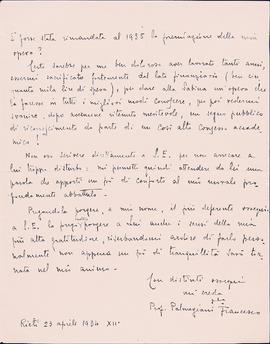 È forse stata rimandata al 1935 la premiazione della mia
opera?
Certo sarebbe per me ben doloroso aver lavorato tanti anni,
essermi sacrificato fortemente dal lato finanziario (ben cin
quanta mila lire di spesa), per dare alla Sabina un'opera che
la facesse in tutti i migliori modi conoscere, per poi vedermi
svanire, dopo esserne ritenuto meritevole, un segno pubblico
di riconoscimento da parte di un così alto Consesso accade
mico!
Non oso scrivere direttamente a S. E. per non arrecare a
lui troppo disturbo: mi permetto quindi attendere da lei una
parola che apporti un po' di conforto al mio morale pro
fondamente abbattuto.
Pregandola porgere, a mio nome, il più deferente ossequio
a S. E., la prego porgere a lui anche i sensi della mia
più alta gratitudine, riserbandomi ardire di farlo perso
nalmente non appena un po' di tranquillità sarà tor
nata nel mio animo.
Con distinti ossequi
mi creda
Prof. Palmegiani Francesco
Rieti 23 aprile 1934 XII°